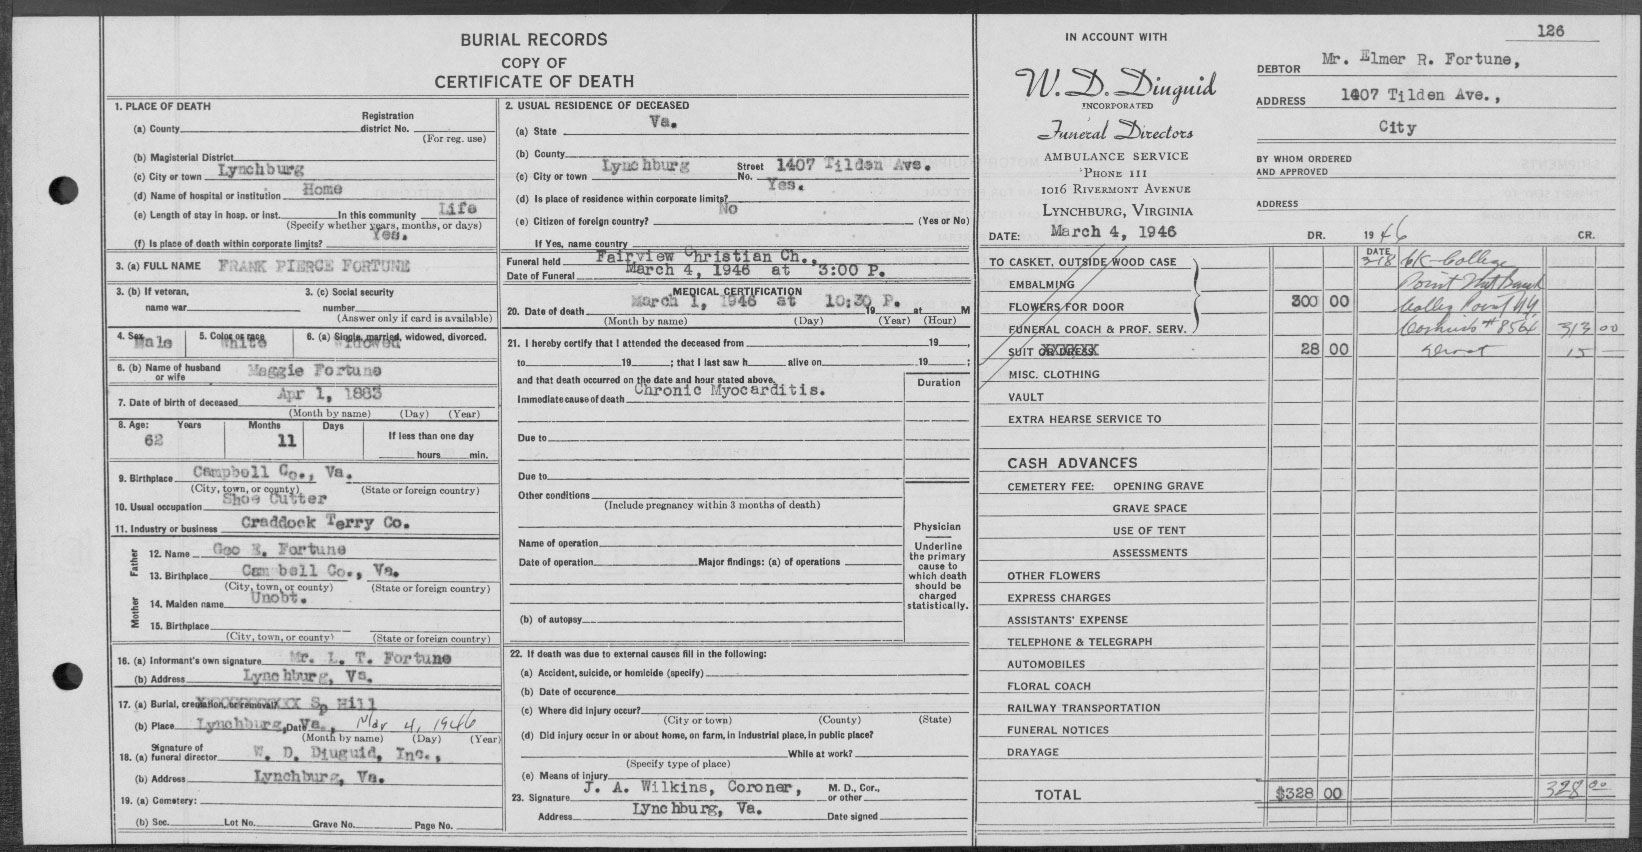 BURIAL RECORDS
COPY OF
CERTIFICATE OF DEATH
1. PLACE OF DEATH
(a) County
Registration district No.
(For reg. use)
(b) Magisterial District
(c) City or town Lynchburg
(d) Name of hospital or institution Home
(e) Length of stay in hosp. or inst. In this community Life
(Specify whether years, months, or days)
(f) Is place of death within corporate limits? Yes.
3. (a) FULL NAME FRANK PIERCE FORTUNE
3. (b) If veteran, name war
3. (c) Social security number
(Answer only if card is available)
4. Sex Male 5. Color or race White 6. (a) Single, married, widowed, divorced. Widowed
6. (b) Name of husband or wife Maggie Fortune
7. Date of birth of deceased Apr 1, 1883
(Month by name) (Day) (Year)
8. Age: Years Months Days
62 11
If less than one day
hours min.
9. Birthplace Campbell Co., Va.
(City, town, or county) (State or foreign country)
10. Usual occupation Shoe Cutter
11. Industry or business Craddock Terry Co.
Father
12. Name Geo E. Fortune
13. Birthplace Cam bell Co., Va.
(City, town, or county) (State or foreign country)
Mother
14. Maiden name Unobt.
15. Birthplace
(City, town, or county) (State or foreign country)
16. (a) Informant's own signature Mr. L. T. Fortune
(b) Address Lynchburg, Va.
17. (a) Burial, cremation, or removal? XXXXXXXXXX Sp Hill
(b) Place Lynchburg, Va., Date Mar 4, 1946
(Month by name) (Day) (Year)
18. (a) Signature of funeral director W. D. Diuguid, Inc.,
(b) Address Lynchburg, Va.
19. (a) Cemetery:
(b) Sec. Lot No. Grave No. Page No.
2. USUAL RESIDENCE OF DECEASED
(a) State Va.
(b) County
(c) City or town Lynchburg Street No. 1407 Tilden Ave.
(d) Is place of residence within corporate limits? Yes.
(e) Citizen of foreign country? No (Yes or No)
If Yes, name country
Funeral held Fairview Christian Ch.,
Date of Funeral March 4, 1946 at 3:00 P.
MEDICAL CERTIFICATION
20. Date of death March 1, 1946 at 10:30 P. 19 at M
(Month by name) (Day) (Year) (Hour)
21. I hereby certify that I attended the deceased from 19 ,
to 19 ; that I last saw h alive on 19 ;
and that death occurred on the date and hour stated above.
Duration
Immediate cause of death Chronic Myocarditis.
Due to
Due to
Other conditions
(Include pregnancy within 3 months of death)
Name of operation
Date of operation Major findings: (a) of operations
(b) of autopsy
Physician
Underline the primary cause to which death should be charged statistically.
22. If death was due to external causes fill in the following:
(a) Accident, suicide, or homicide (specify)
(b) Date of occurence
(c) Where did injury occur?
(City or town) (County) (State)
(d) Did injury occur in or about home, on farm, in industrial place, in public place?
While at work?
(Specify type of place)
(e) Means of injury
23. Signature J. A. Wilkins, Coroner, M. D., Cor., or other
Address Lynchburg, Va. Date signed
126
IN ACCOUNT WITH
W. D. Diuguid
INCORPORATED
Funeral Directors
AMBULANCE SERVICE
PHONE 111
1016 RIVERMONT AVENUE
LYNCHBURG, VIRGINIA
DATE: March 4, 1946
DEBTOR Mr. Elmer R. Fortune,
ADDRESS 1407 Tilden Ave.,
City
BY WHOM ORDERED AND APPROVED
ADDRESS
DR. 1946 CR.
DATE
TO CASKET, OUTSIDE WOOD CASE
EMBALMING
FLOWERS FOR DOOR 300 00
FUNERAL COACH & PROF. SERV.
3-18 College
Point
Point
#8564 313 00
SUIT OR DRESS 28 00 15 —
MISC. CLOTHING
VAULT
EXTRA HEARSE SERVICE TO
CASH ADVANCES
CEMETERY FEE: OPENING GRAVE
GRAVE SPACE
USE OF TENT
ASSESSMENTS
OTHER FLOWERS
EXPRESS CHARGES
ASSISTANTS' EXPENSE
TELEPHONE & TELEGRAPH
AUTOMOBILES
FLORAL COACH
RAILWAY TRANSPORTATION
FUNERAL NOTICES
DRAYAGE
TOTAL $328 00 328 00